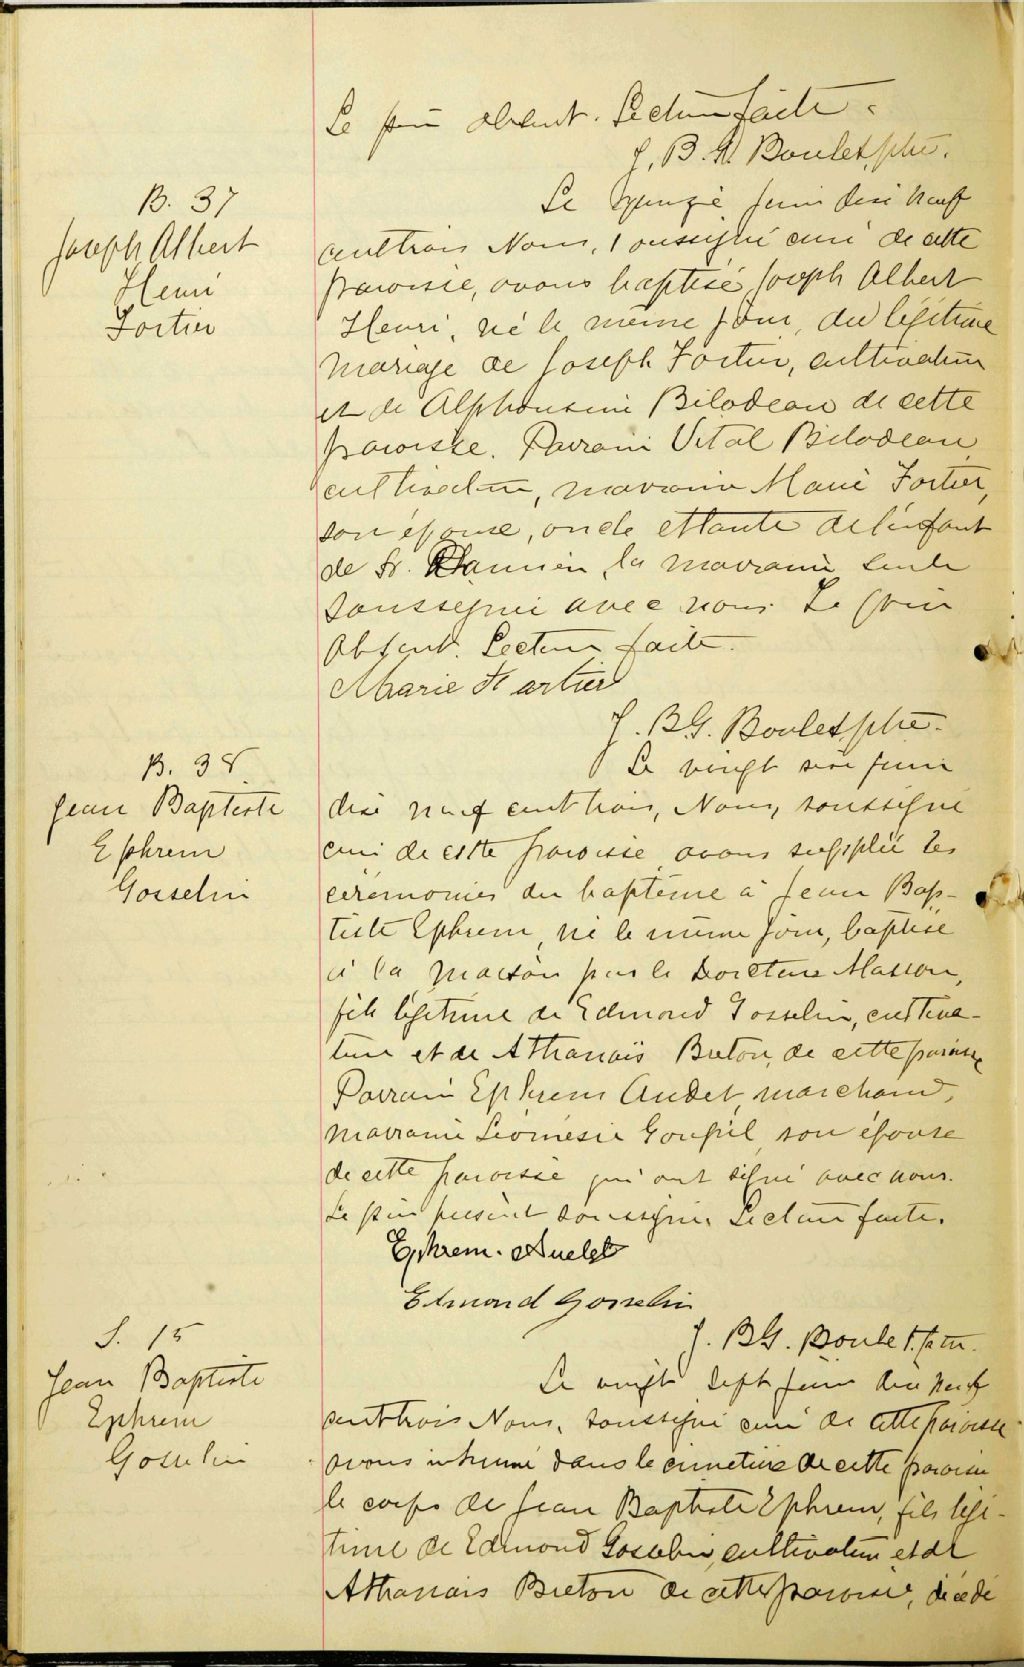 Le père absent. Lecture faite.
J. B. G. Boulet, ptre.
B. 37
Joseph Albert
Henri
Fortier
Le quinze juin dix neuf
cent trois Nous, soussigné curé de cette
paroisse, avons baptisé Joseph Albert
Henri, né le même jour, du légitime
mariage de Joseph Fortier, cultivateur
et de Alphonsine Bilodeau de cette
paroisse. Parrain Vital Bilodeau
cultivateur, marraine Marie Fortier,
son épouse, oncle et tante de l'enfant
de St. Damien, la marraine seule
soussignée avec nous. Le père
absent. Lecture faite.
Marie Fortier
J. B. G. Boulet, ptre.
B. 38
Jean Baptiste
Ephrem
Gosselin
Le vingt six juin
dix neuf cent trois, Nous, soussigné
curé de cette paroisse avons supplée les
cérémonies du baptême à Jean Bap-
tiste Ephrem, né le même jour, baptisé
à la maison par le Docteur Masson,
fils légitime de Edmond Gosselin, cultiva-
teur et de Athanaïs Breton, de cette paroisse
Parrain Ephrem Audet, marchand,
marraine Léomésie Goupil son épouse
de cette paroisse qui ont signé avec nous.
Le père présent soussigné. Lecture faite.
Ephrem. Audet
Edmond Gosselin
J. B. G. Boulet, ptre.
S. 15
Jean Baptiste
Ephrem
Gosselin
Le vingt sept juin dix neuf
cent trois Nous, soussigné curé de cette paroisse
avons inhumé dans le cimetière de cette paroisse
le corps de Jean Baptiste Ephrem, fils légi-
time de Edmond Gosselin, cultivateur et de
Athanaïs Breton de cette paroisse, décédé